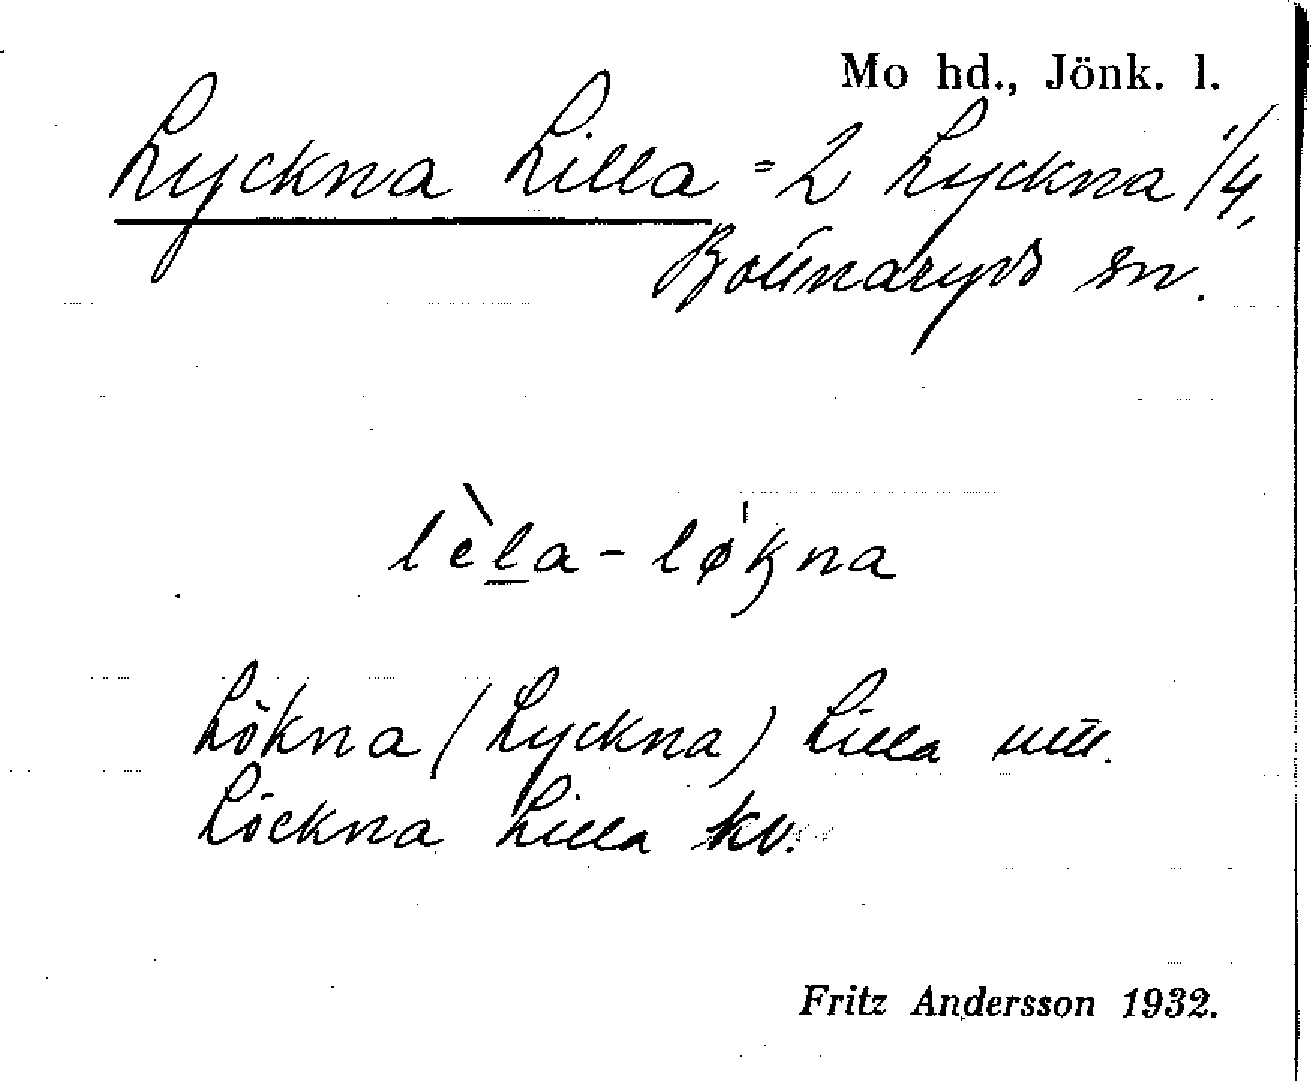 Mo hd., Jönk. l.
Lyckna Lilla = 2 Lyckna 1/4,
Bottnaryds sn.
lèla - løkna
Lökna (Lyckna) Lilla
Löckna Lilla kv.
Fritz Andersson 1932.